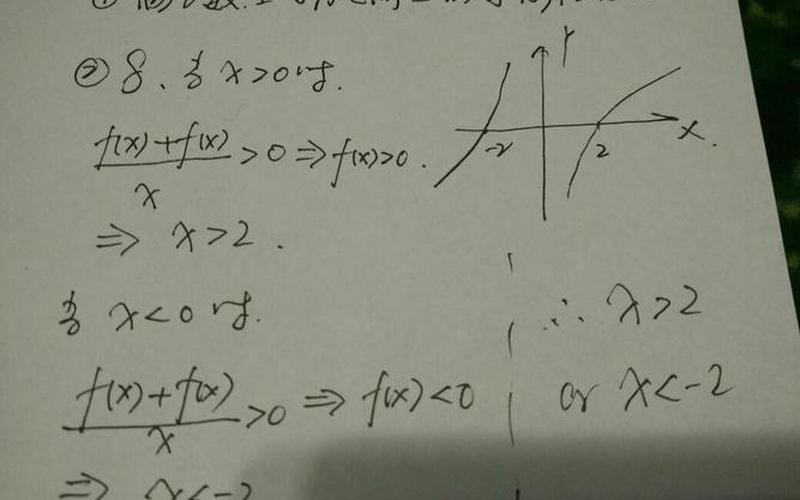 ② 8、当 x>0 时.
(f(x)+f(x))/x >0 ⇒ f(x)>0.
⇒ x>2.
Y
X.
-2
2
当 x<0 时.
(f(x)+f(x))/x >0 ⇒ f(x)<0
⇒ x<-2
∴ x>2
or x<-2